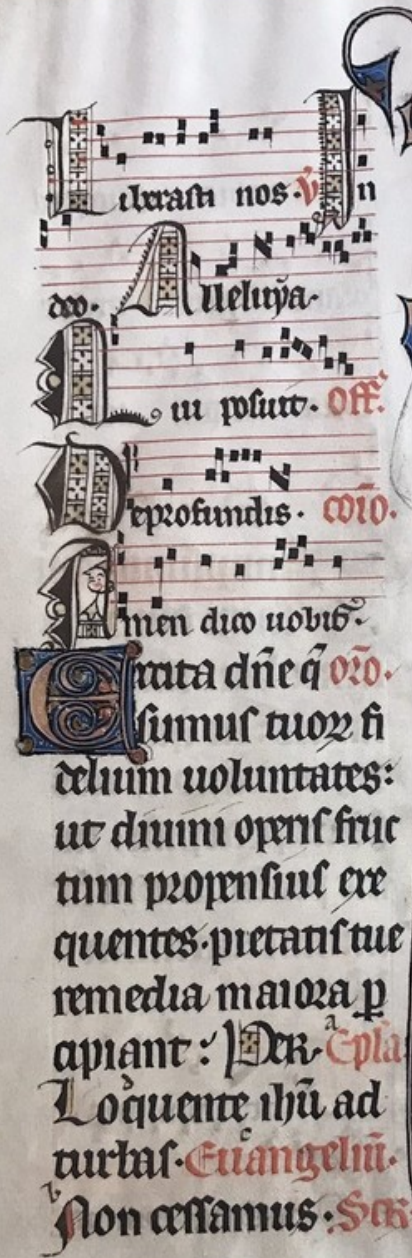 Liberasti nos. V̄ In
deo. Alleluya.
Qui posuit. Off.a
Deprofundis. com̄o.
Amen dico uobis.
Excita dn̄e q̄ or̄o.
sumus tuoꝝ fi
delium uoluntates:
ut diuini operis fruc
tum propensius exe
quentes. pietatis tue
remedia maiora ꝑ
cipiant: Per. a Epl̄a
Loquente ih̄u ad
turbas. c Euangeliū.
b Non cessamus. Scr̄